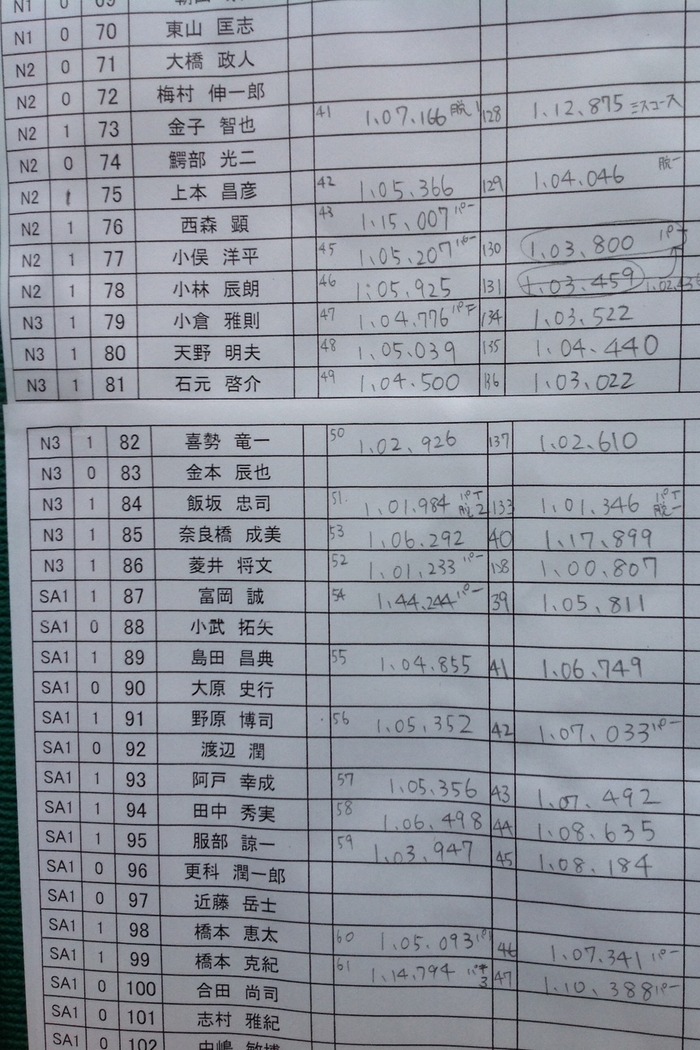 N1 0 69
N1 0 70 東山 匡志
N2 0 71 大橋 政人
N2 0 72 梅村 伸一郎
N2 1 73 金子 智也 41 1,07,166 脱1 128 1,12,875 ミスコース
N2 0 74 鰐部 光二
N2 1 75 上本 昌彦 42 1,05,366 129 1,04,046 脱一
N2 1 76 西森 顕 43 1,15,007 パー
N2 1 77 小俣 洋平 45 1,05,207 パー 130 1,03,800
N2 1 78 小林 辰朗 46 1:05,925 131 1,03,459
N3 1 79 小倉 雅則 47 1,04,776 134 1,03,522
N3 1 80 天野 明夫 48 1,05,039 135 1,04,440
N3 1 81 石元 啓介 49 1,04,500 136 1,03,022
N3 1 82 喜勢 竜一 50 1,02,926 137 1,02,610
N3 0 83 金本 辰也
N3 1 84 飯坂 忠司 51 1,01,984 脱2 133 1,01,346 脱一
N3 1 85 奈良橋 成美 53 1,06,292 40 1,17,899
N3 1 86 菱井 将文 52 1,01,233 パー 138 1,00,807
SA1 1 87 富岡 誠 54 1,44,244 パー 39 1,05,811
SA1 0 88 小武 拓矢
SA1 1 89 島田 昌典 55 1,04,855 41 1,06,749
SA1 0 90 大原 史行
SA1 1 91 野原 博司 56 1,05,352 42 1,07,033 パー
SA1 0 92 渡辺 潤
SA1 1 93 阿戸 幸成 57 1,05,356 43 1,07,492
SA1 1 94 田中 秀実 58 1,06,498 44 1,08,635
SA1 1 95 服部 諒一 59 1,03,947 45 1,08,184
SA1 0 96 更科 潤一郎
SA1 0 97 近藤 岳士
SA1 1 98 橋本 恵太 60 1,05,093 46 1,07,341 パー
SA1 1 99 橋本 克紀 61 1,14,794 3 47 1,10,388 パー
SA1 0 100 合田 尚司
SA1 0 101 志村 雅紀
SA1 0 102 中嶋 敏博